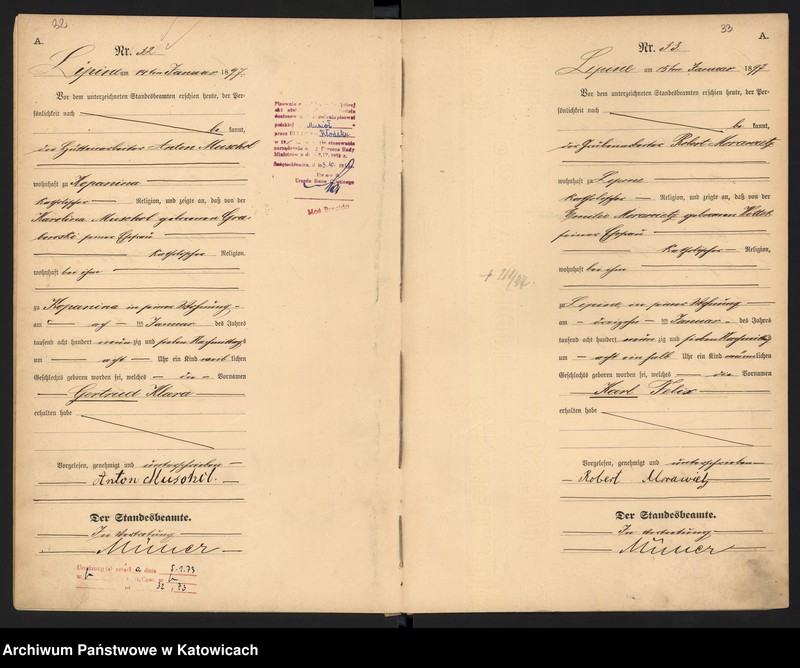 32
A.
Nr. 32
Lipine am 14ten Januar 1897.
Vor dem unterzeichneten Standesbeamten erschien heute, der Per-
sönlichkeit nach
be kannt,
der Hüttenarbeiter Anton Muschol
wohnhaft zu Kopanina
katholischer Religion, und zeigte an, daß von der
Karolina Muschol geborenen Gra-
bowski seiner Ehefrau
katholischer Religion,
wohnhaft bei ihm
zu Kopanina in seiner Wohnung
am acht ten Januar des Jahres
tausend acht hundert neun zig und sieben Nachmittags
um acht Uhr ein Kind weib lichen
Geschlechts geboren worden sei, welches die Vornamen
Gertrud Klara
erhalten habe
Vorgelesen, genehmigt und unterschrieben
Anton Muschol.
Der Standesbeamte.
In Vertretung
Müller
5.1.73
32 73
Pisownia
polskiej
Musioł
przez
Kłodzka
Urzędu Stanu Cywilnego
33
A.
Nr. 33
Lipine am 15ten Januar 1897
Vor dem unterzeichneten Standesbeamten erschien heute, der Per-
sönlichkeit nach
be kannt,
der Grubenarbeiter Robert Morawietz
wohnhaft zu Lipine
katholischer Religion, und zeigte an, daß von der
Emilie Morawietz geborenen
seiner Ehefrau
katholischer Religion,
wohnhaft bei ihm
zu Lipine in seiner Wohnung
am dreizehn ten Januar des Jahres
tausend acht hundert neun zig und sieben Nachmittags
um acht ein halb Uhr ein Kind männlichen
Geschlechts geboren worden sei, welches die Vornamen
Karl Felix
erhalten habe
Vorgelesen, genehmigt und unterschrieben
Robert Morawietz
Der Standesbeamte.
In Vertretung
Müller
Archiwum Państwowe w Katowicach